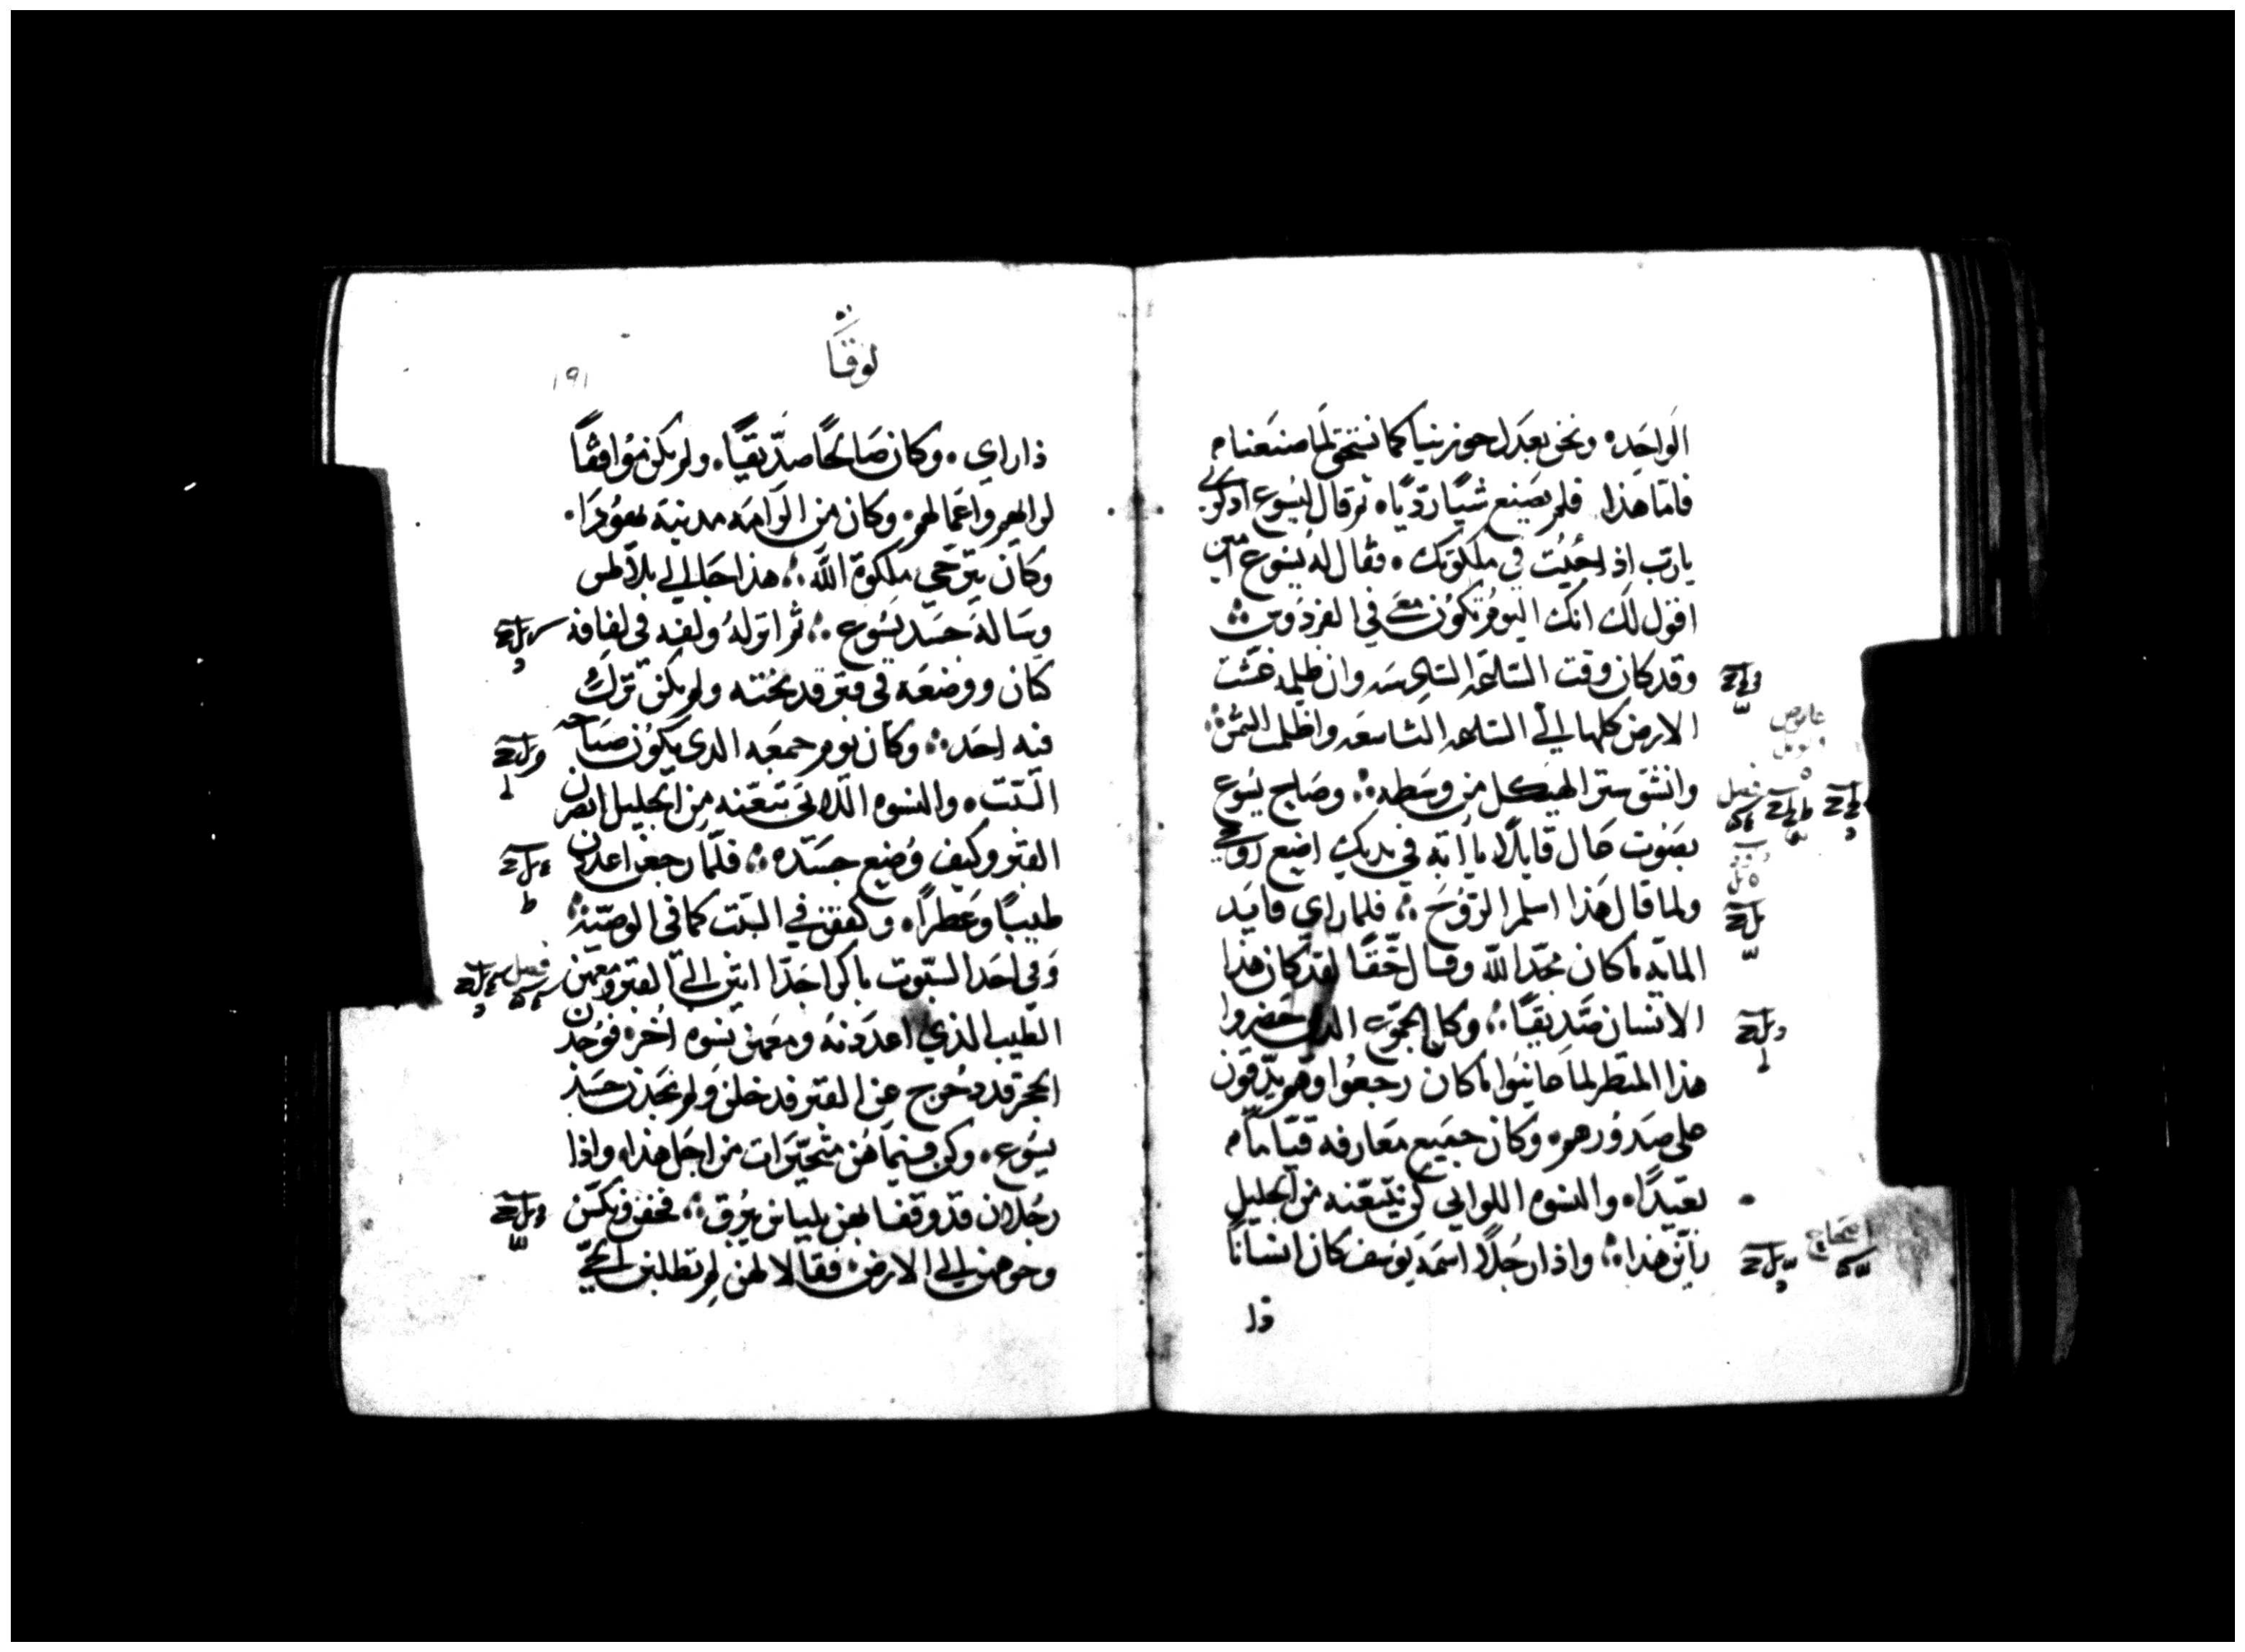 الواحده ونحن بعدل جوزينا كما نستحق لما صنعنا م
فاما هذا فلم يصنع شيًا رديًا ه ثم قال ليسوع اذكرني
يارب اذا جيت في ملكوتك ه فقال له يسوع امين
اقول لك انك اليوم تكون معي في الفردوس
وقد كان وقت الساعه السادسه وان ظلمه غشت
الارض كلها الي الساعه التاسعه واظلمت الشمس
وانشق ستر الهيكل من وسطه وصاح يسوع
بصوت عال قايلًا يا ابه في يديك اضع روحي
ولما قال هذا اسلم الروح فلما راي قايد
المايه ما كان مجد الله وقال حقًا لقد كان هذا
الانسان صديقًا وكل الجموع الذين حضروا
هذا المنظر لما عاينوا ما كان رجعوا وهم يدقون
علي صدورهم ه وكان جميع معارفه قيامًا م
بعيدًا ه والنسوه اللواتي كن يتبعنه من الجليل
راين هذا واذا رجلًا اسمه يوسف كان انسانًا
ذا
لوقا
191
ذا راي ه وكان صالحًا صديقًا ه ولم يكن موافقًا
لرايهم واعمالهم ه وكان من الرامه مدينة يهودا ه
وكان يترجي ملكوة الله هذا جا الي بلاطس
وساله جسد يسوع ثم انزله ولفه في لفافة
كتان ووضعه في قبر قد نحته ولم يكن ترك
فيه احد وكان يوم جمعه الذي يكون صباحه
السبت ه والنسوه اللاتي تبعنه من الجليل ابصرن
القبر وكيف وضع جسده فلما رجعن اعددن
طيبًا وعطرًا ه وكففن في السبت كما في الوصية
وفي احد السبوت باكرا جدا اتين الي القبر ومعهن
الطيب الذي اعددنه ومعهن نسوه اخره فوجدن
الحجر قد دحرج عن القبر فدخلن ولم يجدن جسد
يسوع ه وكن فيما هن متحيرات من اجل هذا ه واذا
رجلان قد وقفا بهن بلباس يبرق فخفن ونكسن
وجوههن الي الارض فقالا لهن لم تطلبن الحي